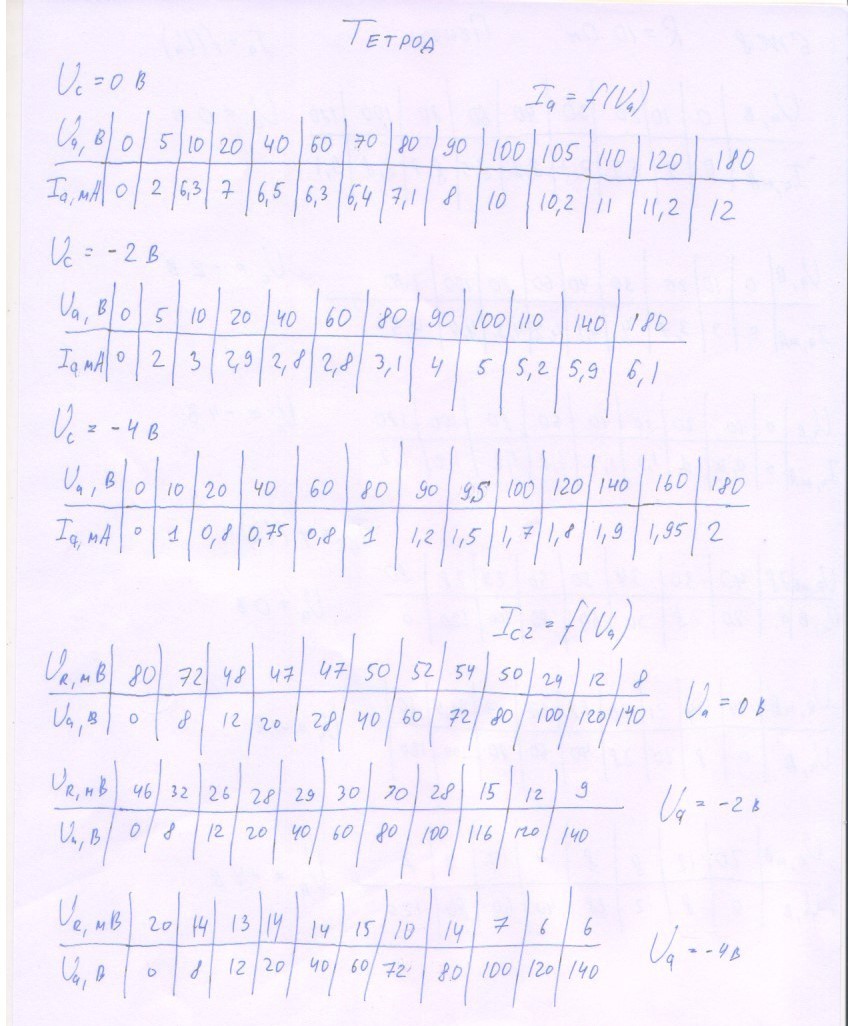 Тетрод
Uc = 0 В
Ia = f(Ua)
Ua, В | 0 | 5 | 10 | 20 | 40 | 60 | 70 | 80 | 90 | 100 | 105 | 110 | 120 | 180
Ia, мА | 0 | 2 | 6,3 | 7 | 6,5 | 6,3 | 6,4 | 7,1 | 8 | 10 | 10,2 | 11 | 11,2 | 12
Uc = -2 В
Ua, В | 0 | 5 | 10 | 20 | 40 | 60 | 80 | 90 | 100 | 110 | 140 | 180
Ia, мА | 0 | 2 | 3 | 2,9 | 2,8 | 2,8 | 3,1 | 4 | 5 | 5,2 | 5,9 | 6,1
Uc = -4 В
Ua, В | 0 | 10 | 20 | 40 | 60 | 80 | 90 | 9,5 | 100 | 120 | 140 | 160 | 180
Ia, мА | 0 | 1 | 0,8 | 0,75 | 0,8 | 1 | 1,2 | 1,5 | 1,7 | 1,8 | 1,9 | 1,95 | 2
Ic2 = f(Ua)
UR, мВ | 80 | 72 | 48 | 47 | 47 | 50 | 52 | 54 | 50 | 24 | 12 | 8
Ua, В | 0 | 8 | 12 | 20 | 28 | 40 | 60 | 72 | 80 | 100 | 120 | 140
Ua = 0 В
UR, мВ | 46 | 32 | 26 | 28 | 29 | 30 | 30 | 28 | 15 | 12 | 9
Ua, В | 0 | 8 | 12 | 20 | 40 | 60 | 80 | 100 | 116 | 120 | 140
Ua = -2 В
UR, мВ | 20 | 14 | 13 | 14 | 14 | 15 | 10 | 14 | 7 | 6 | 6
Ua, В | 0 | 8 | 12 | 20 | 40 | 60 | 72 | 80 | 100 | 120 | 140
Ua = -4 В